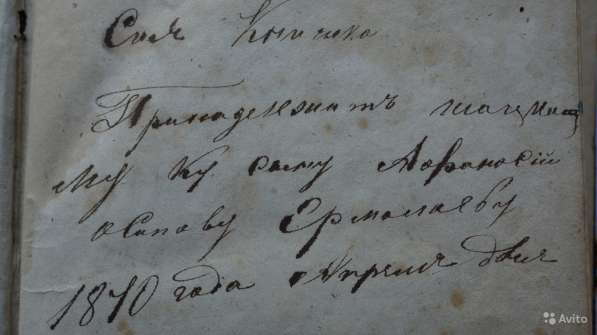 Сия Книжка
Принадлежитъ
му Ку сыну Афонасий
осипову Ермолаеву
1870 года Апреля дня
Avito